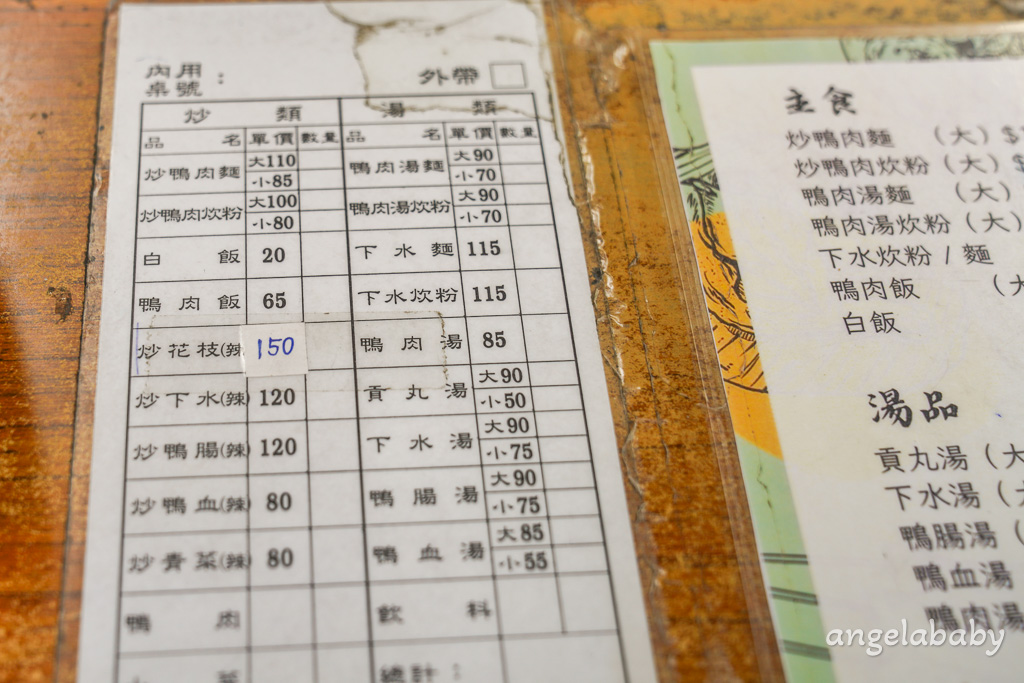 內用
桌號：
外帶
炒類 湯類
品名 單價 數量 品名 單價 數量
炒鴨肉麵 大110 小85 鴨肉湯麵 大90 小70
炒鴨肉炊粉 大100 小80 鴨肉湯炊粉 大90 小70
白飯 20 下水麵 115
鴨肉飯 65 下水炊粉 115
炒花枝(辣 150 鴨肉湯 85
炒下水(辣) 120 貢丸湯 大90 小50
炒鴨腸(辣) 120 下水湯 大90 小75
炒鴨血(辣) 80 鴨腸湯 大90 小75
炒青菜(辣) 80 鴨血湯 大85 小55
鴨肉 飲料
總計：
主食
炒鴨肉麵 （大）$
炒鴨肉炊粉（大）$
鴨肉湯麵 （大）
鴨肉湯炊粉（大）
下水炊粉 / 麵
鴨肉飯 （大
白飯
湯品
貢丸湯（大
下水湯（
鴨腸湯（
鴨血湯
鴨肉湯
angelababy